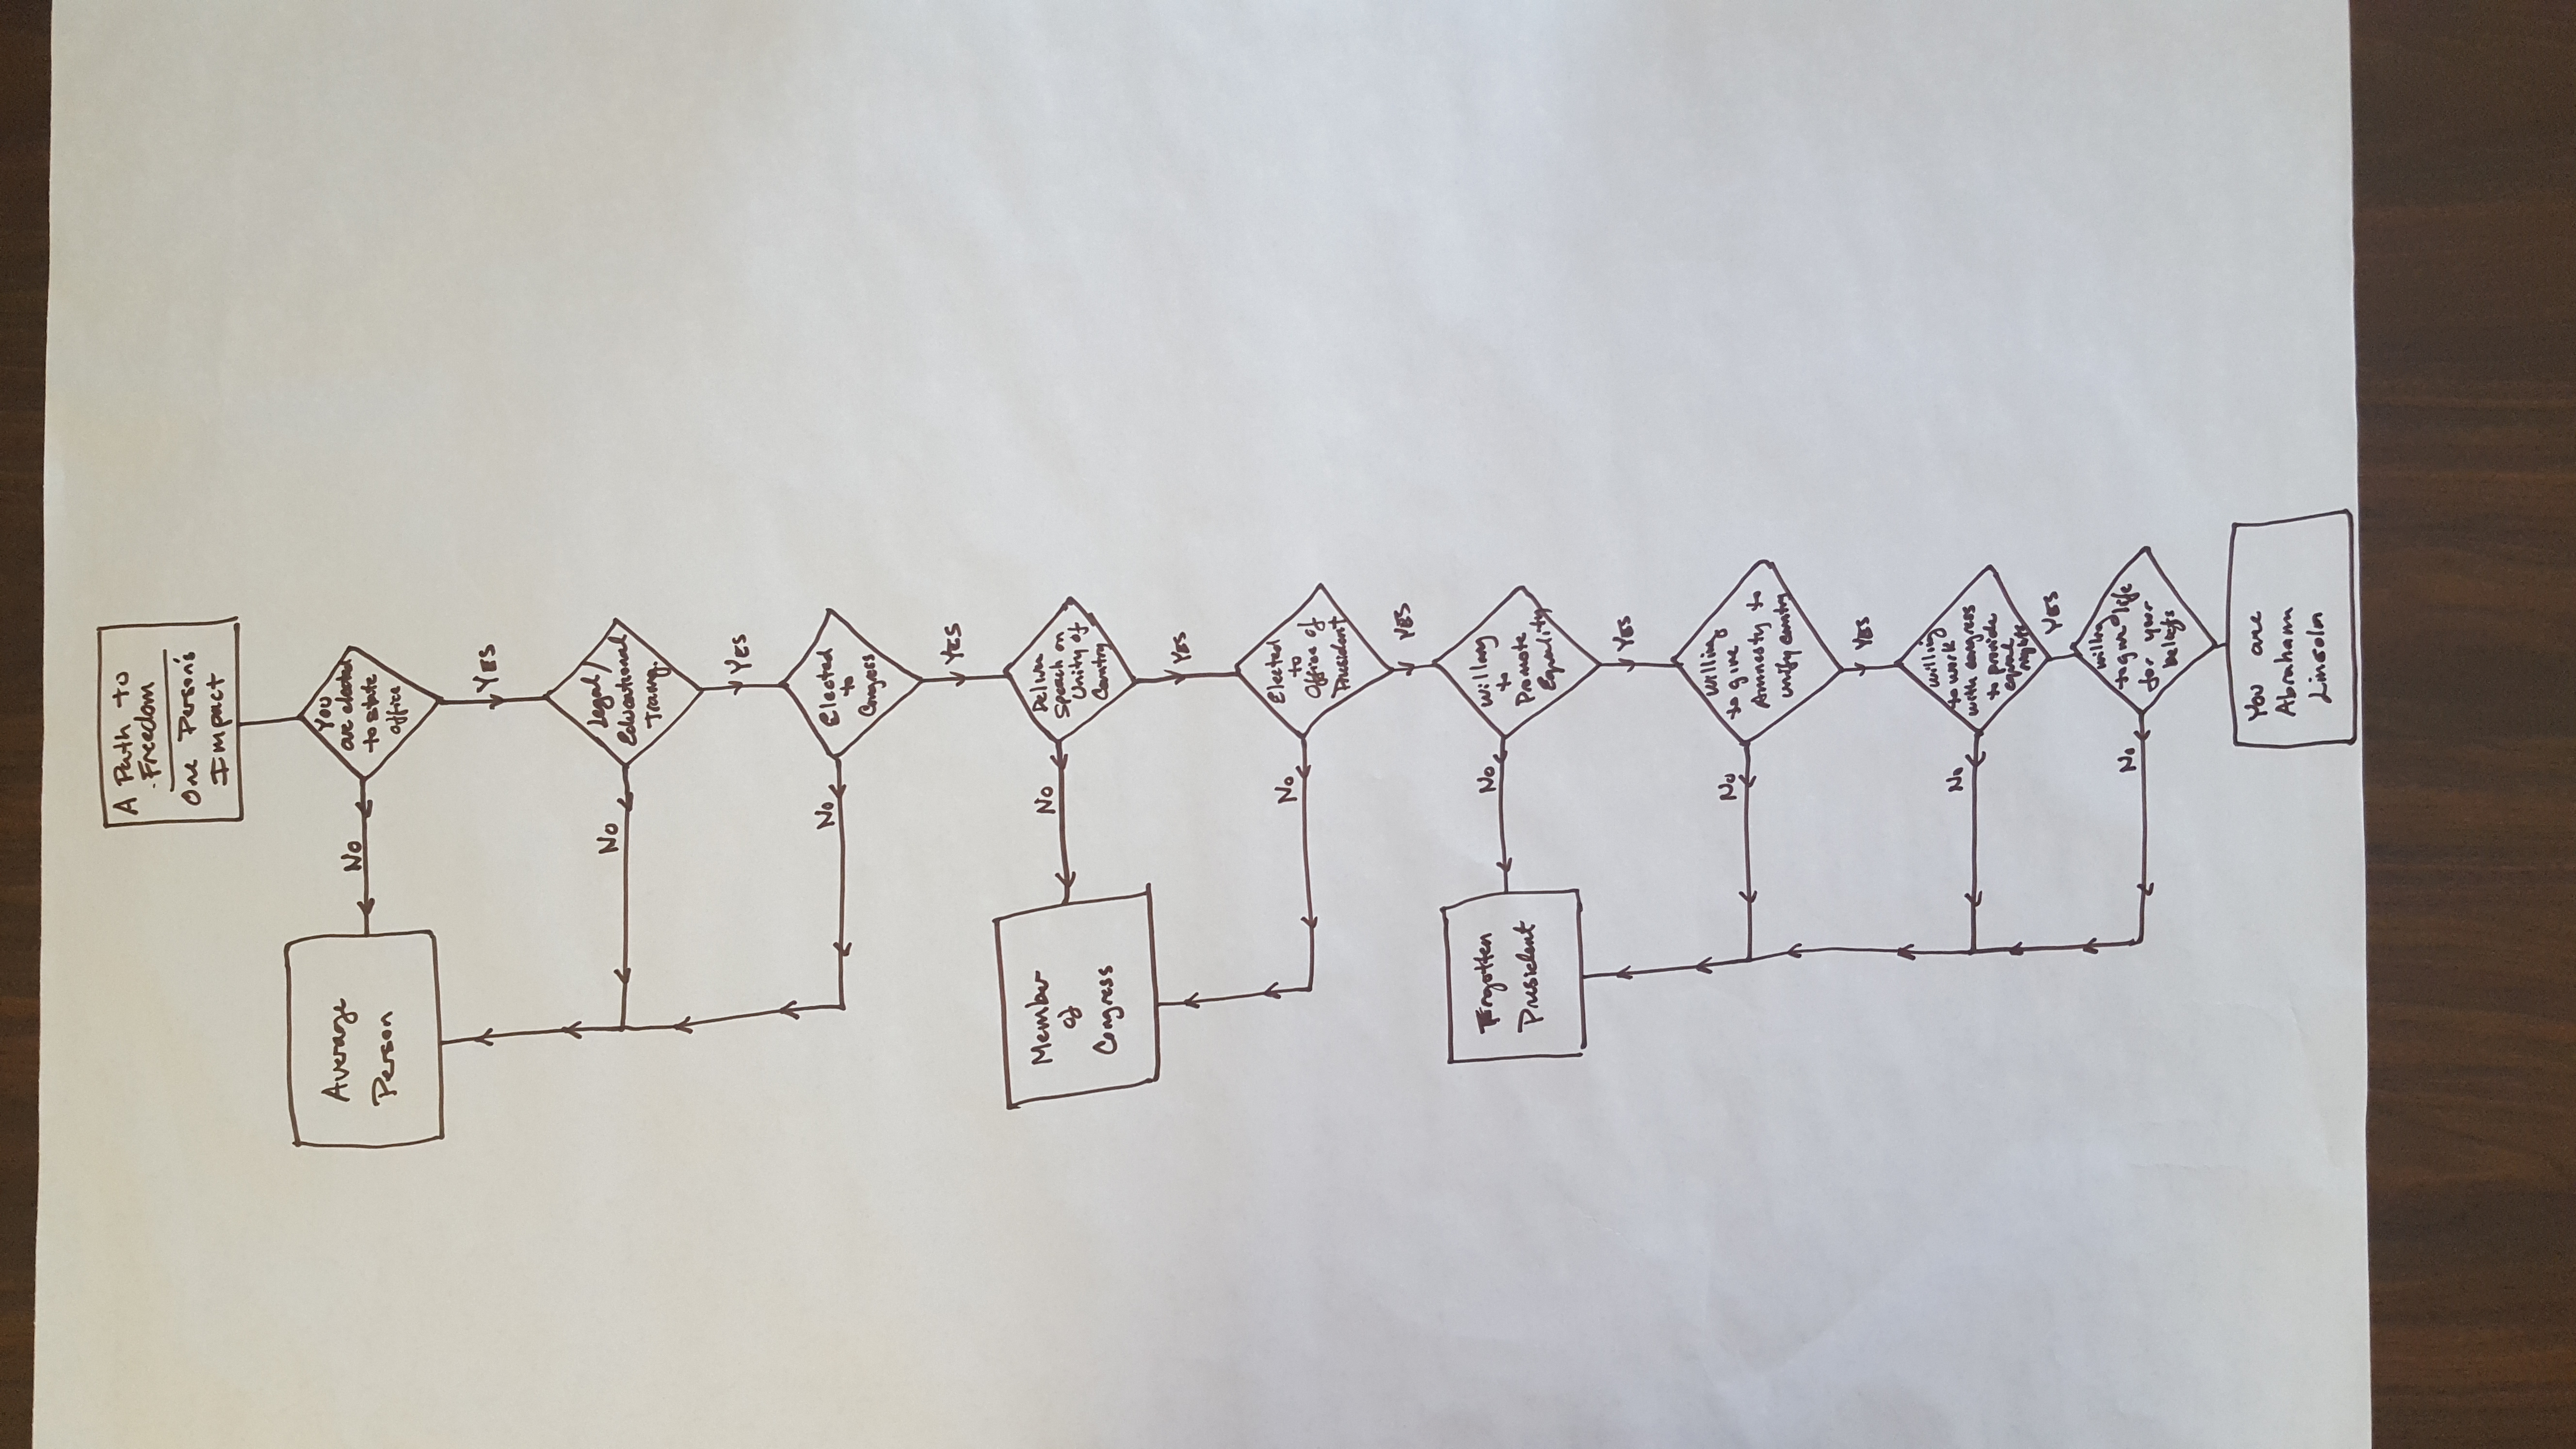 A Path to
Freedom
One Person's
Impact
You
are elected
to state
office
No
Average
Person
YES
Legal/
Educational
Traing.
No
YES
Elected
to
Congress
No
YES
Deliver
Speach on
Unity of
Country
No
Member
of
Congress
YES
Elected
to
Office of
President
No
YES
Willing
to
Promote
Equality
No
Forgotten
President
YES
Willing
to give
Amnesty to
unify country
No
YES
willing
to work
with congress
to provide
equal
rights
No
YES
willing
to give life
for your
beliefs
No
You are
Abraham
Lincoln